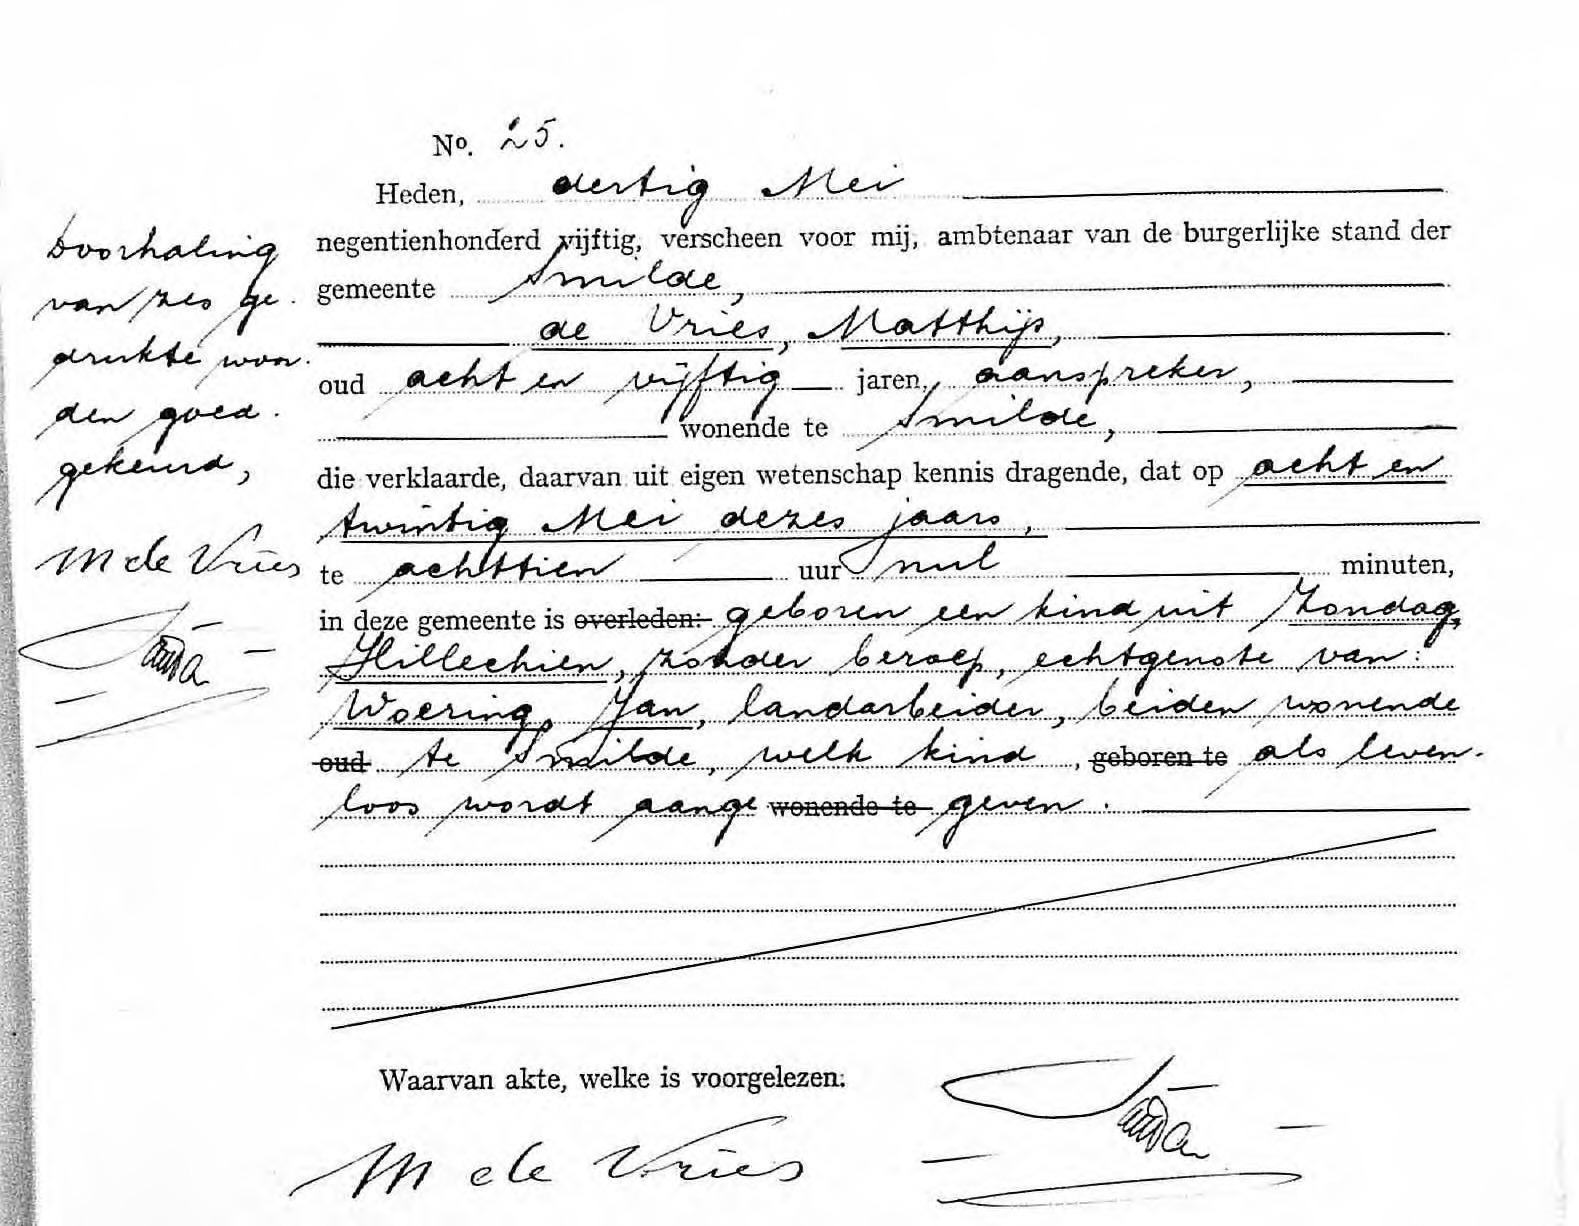 No. 25.
Heden, dertig Mei
negentienhonderd vijftig, verscheen voor mij, ambtenaar van de burgerlijke stand der
gemeente Smilde,
de Vries, Matthijs,
oud acht en vijftig jaren, aanspreker,
wonende te Smilde,
die verklaarde, daarvan uit eigen wetenschap kennis dragende, dat op acht en
twintig Mei dezes jaars,
te achttien uur nul minuten,
in deze gemeente is overleden: geboren een kind uit Zondag,
Hillechien, zonder beroep, echtgenote van:
Woering, Jan, landarbeider, beiden wonende
oud te Smilde, welk kind, geboren te als leven-
loos wordt aange wonende te geven.
Doorhaling
van zes ge-
drukte woor-
den goed-
gekeurd,
M de Vries
Waarvan akte, welke is voorgelezen.
M de Vries